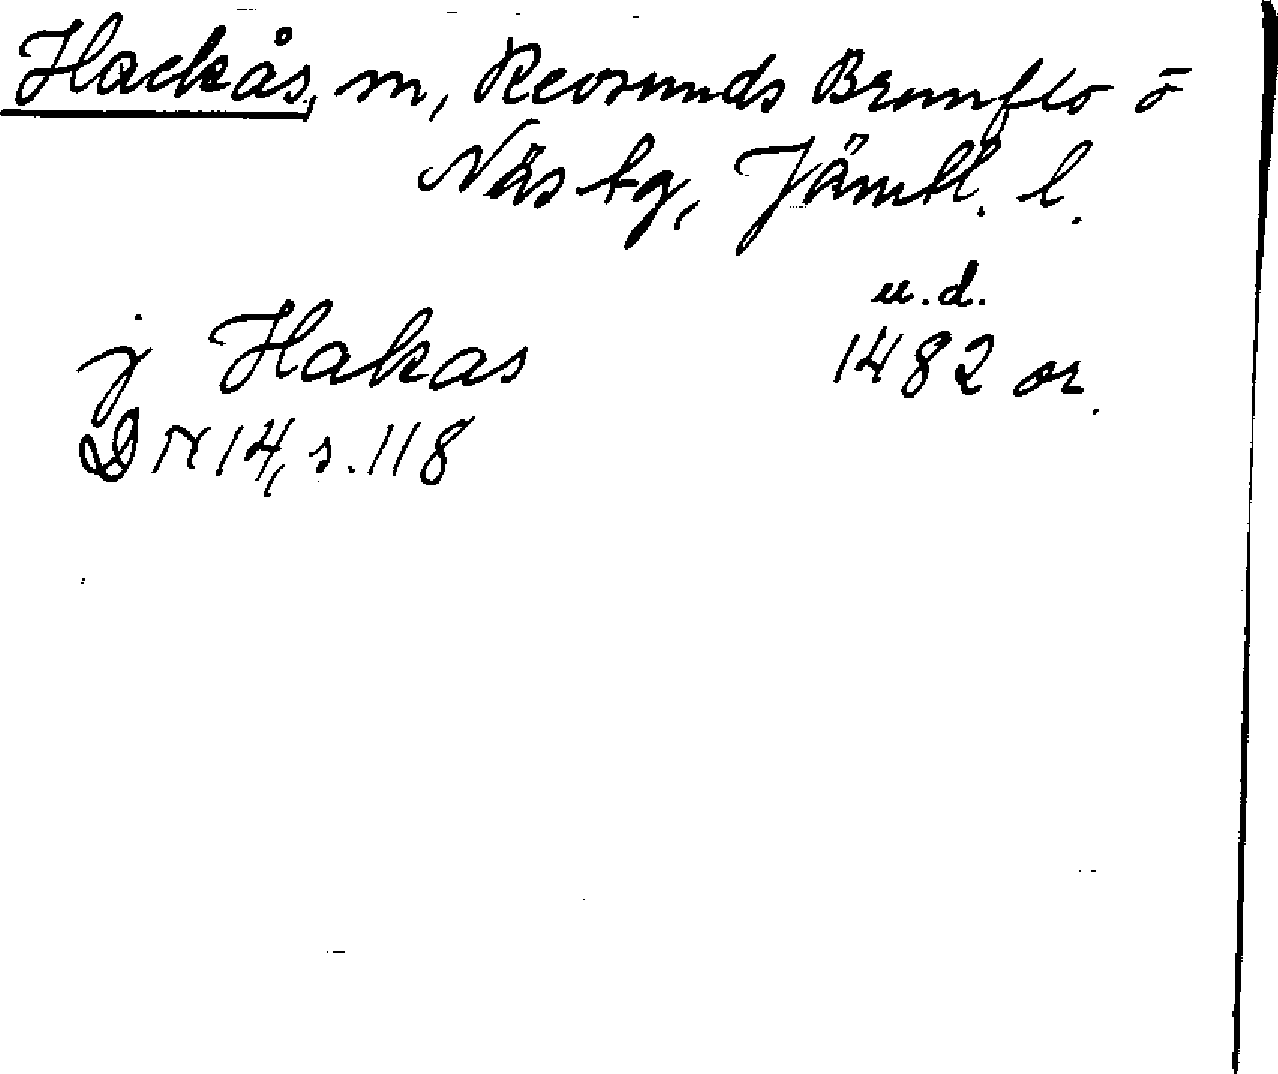 Hackås, m, Revsunds Brunflo o
Näs tg, Jämtl. l.
u.d.
j Hakas 1482 or.
DN 14, s. 118